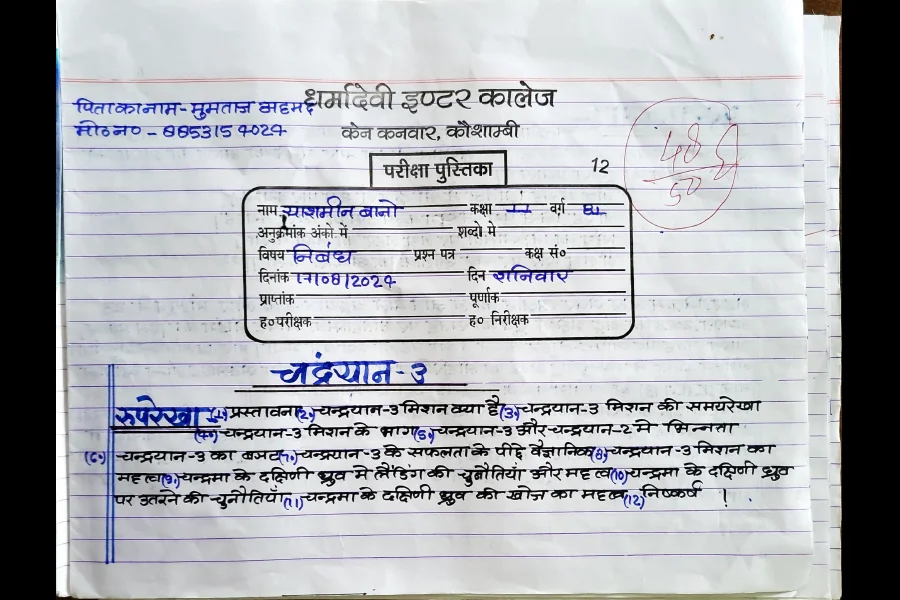 पिता का नाम - मुमताज अहमद
धर्मादेवी इण्टर कालेज
मो० न० - 8853154024
केन कनवार, कौशाम्बी
परीक्षा पुस्तिका
12
48
50
नाम याशमीन बानो कक्षा 11 वर्ग B1
अनुक्रमांक अंको में शब्दो मे
विषय निबंध प्रश्न पत्र कक्ष सं०
दिनांक 17/08/2024 दिन शनिवार
प्राप्तांक पूर्णांक
ह० परीक्षक ह० निरीक्षक
चद्रंयान-3
रुपरेखा (1) प्रस्तावना (2) चन्द्रयान-3 मिशन क्या है (3) चन्द्रयान-3 मिशन की समयरेखा
(4) चन्द्रयान-3 मिशन के भाग (5) चन्द्रयान-3 और चन्द्रयान-2 मे भिन्नता
(6) चन्द्रयान-3 का बजट (7) चन्द्रयान-3 के सफलता के पीछे वैज्ञानिक (8) चन्द्रयान-3 मिशन का
महत्व (9) चन्द्रमा के दक्षिणी ध्रुव मे लैंडिंग की चुनौतियाँ और महत्व (10) चन्द्रमा के दक्षिणी ध्रुव
पर उतरने की चुनौतियाँ (11) चन्द्रमा के दक्षिणी ध्रुव की खोज का महत्व (12) निष्कर्ष !